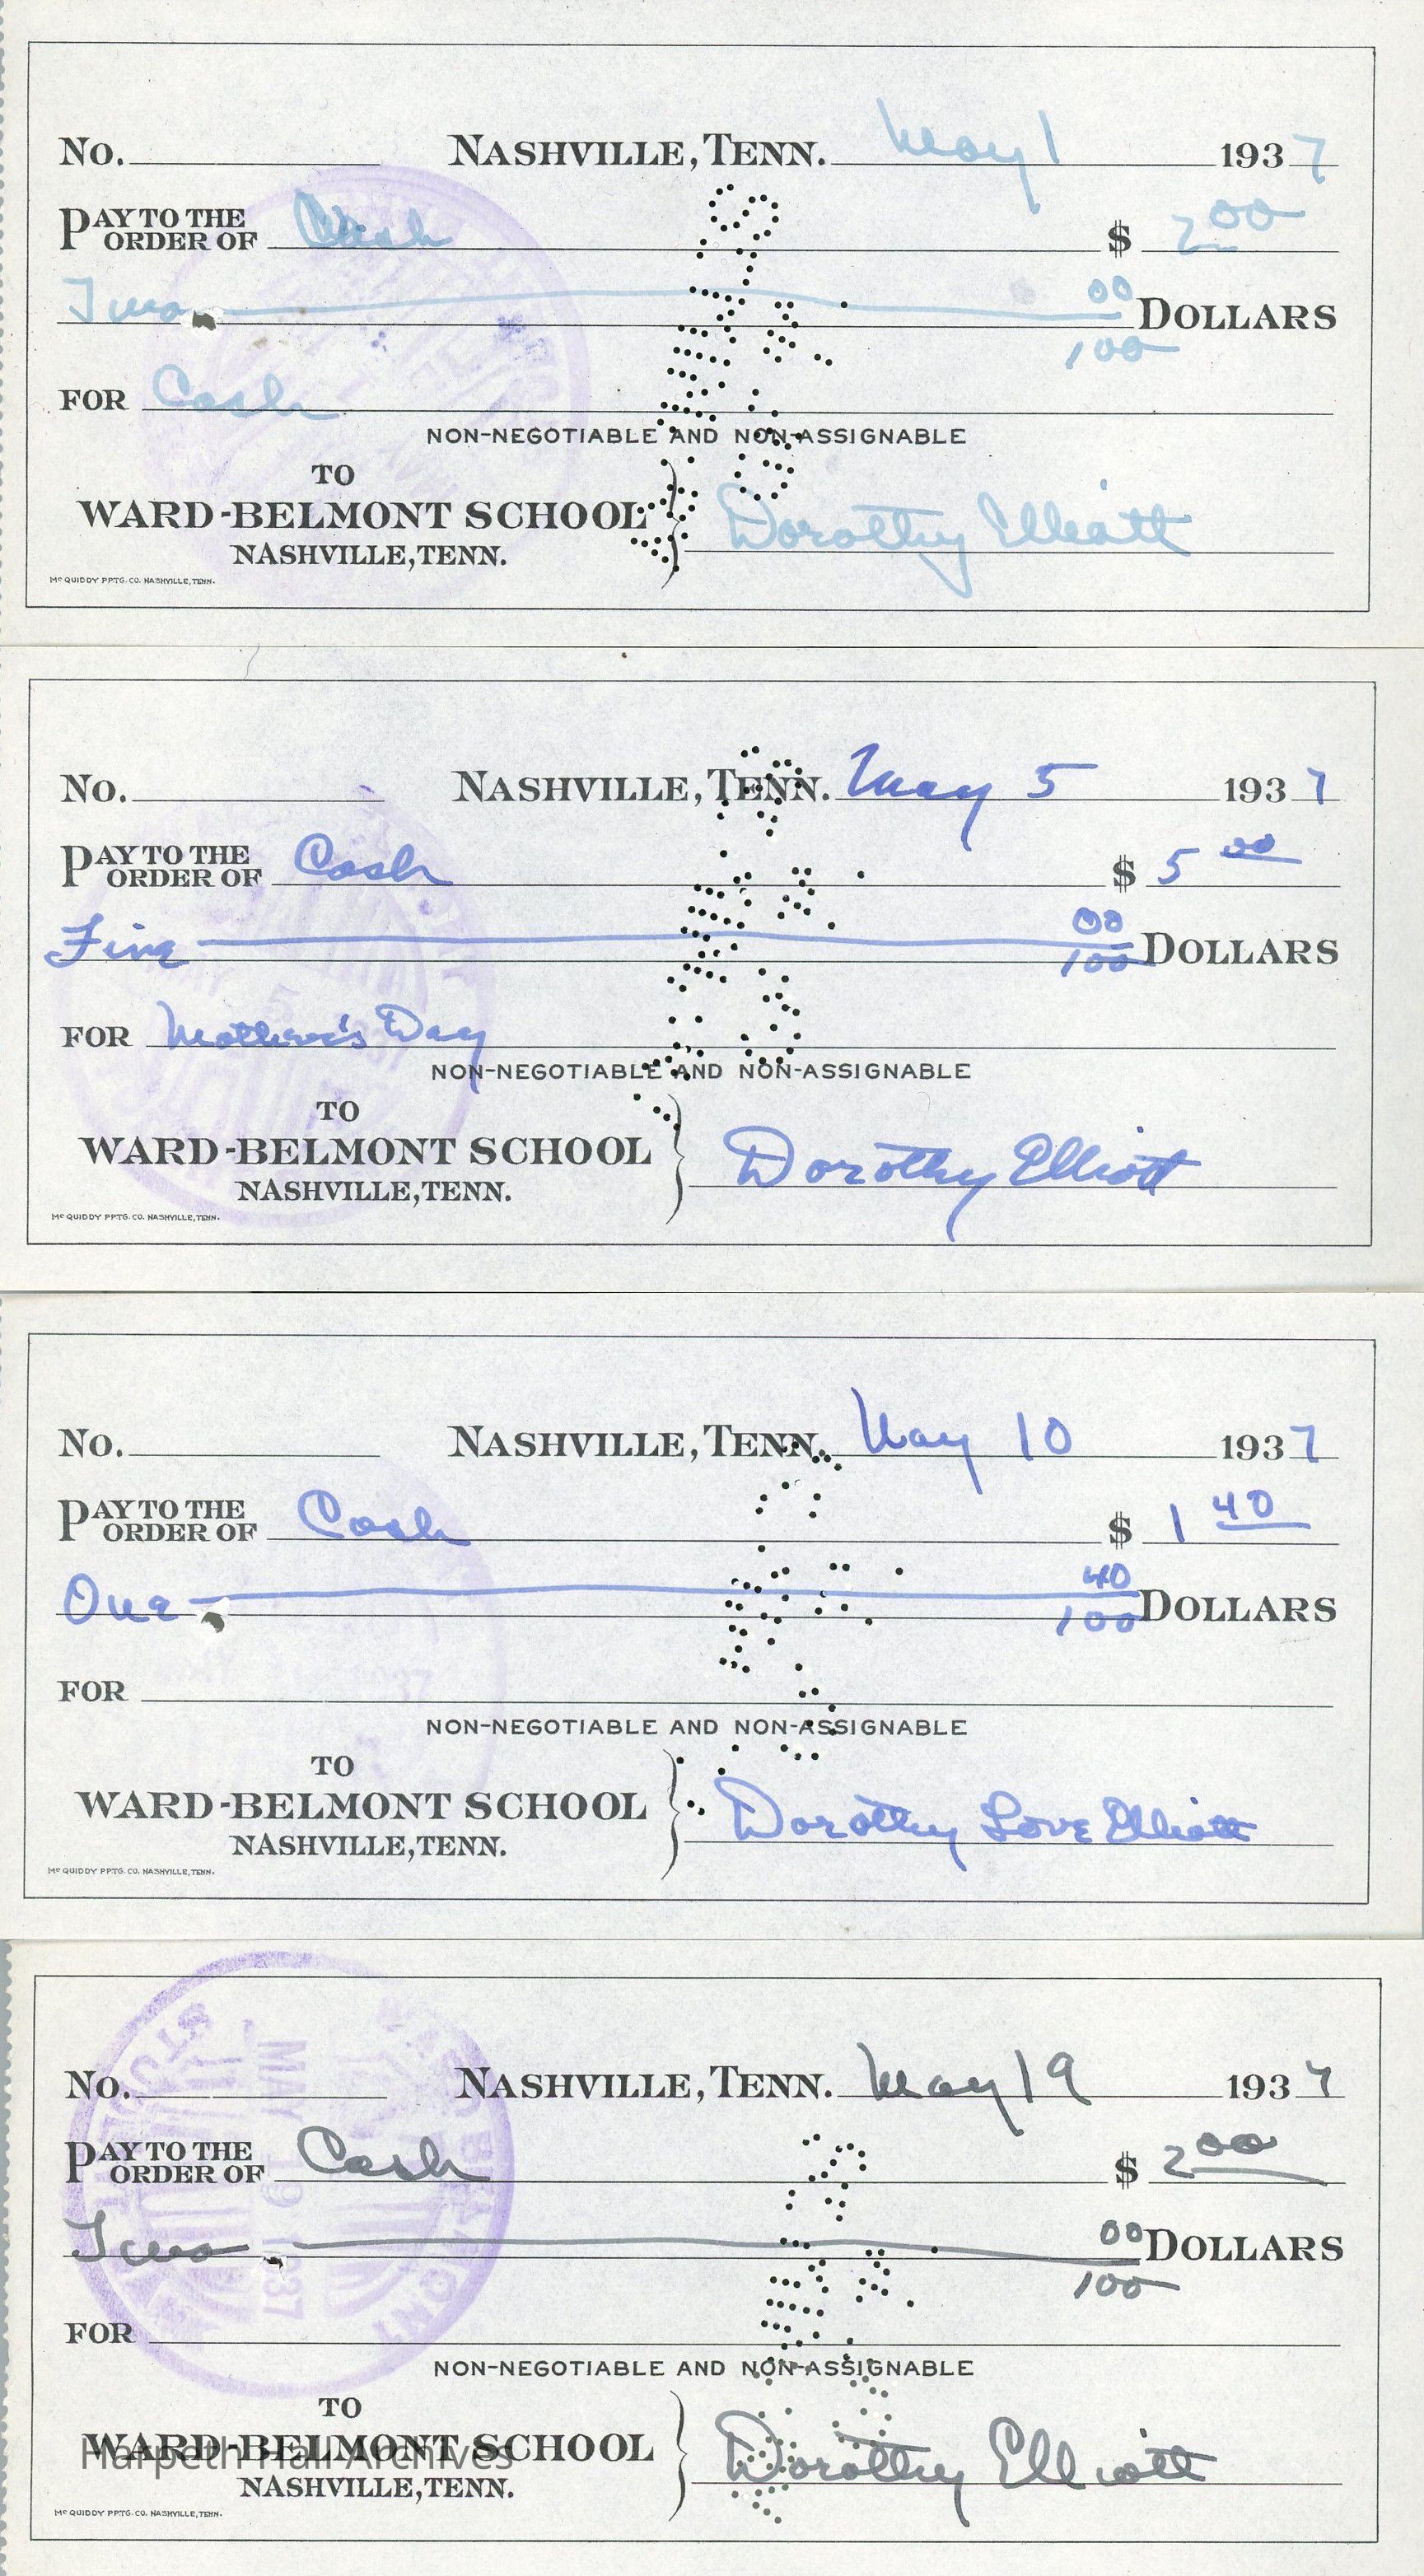 No. NASHVILLE, TENN. May 1 1937
PAY TO THE ORDER OF Cash $ 2 00
Two 00/100 DOLLARS
FOR Cash
NON-NEGOTIABLE AND NON-ASSIGNABLE
TO
WARD-BELMONT SCHOOL
NASHVILLE, TENN.
Dorothy Elliott
McQUIDDY PPTG. CO. NASHVILLE, TENN.
No. NASHVILLE, TENN. May 5 1937
PAY TO THE ORDER OF Cash $ 5 00
Five 00/100 DOLLARS
FOR Mother's Day
NON-NEGOTIABLE AND NON-ASSIGNABLE
TO
WARD-BELMONT SCHOOL
NASHVILLE, TENN.
Dorothy Elliott
McQUIDDY PPTG. CO. NASHVILLE, TENN.
No. NASHVILLE, TENN. May 10 1937
PAY TO THE ORDER OF Cash $ 1 40
One 40/100 DOLLARS
FOR
NON-NEGOTIABLE AND NON-ASSIGNABLE
TO
WARD-BELMONT SCHOOL
NASHVILLE, TENN.
Dorothy Love Elliott
McQUIDDY PPTG. CO. NASHVILLE, TENN.
MAY 19 1937
No. NASHVILLE, TENN. May 19 1937
PAY TO THE ORDER OF Cash $ 2 00
Two 00/100 DOLLARS
FOR
NON-NEGOTIABLE AND NON-ASSIGNABLE
TO
WARD-BELMONT SCHOOL
Harpeth Hall Archives
NASHVILLE, TENN.
Dorothy Elliott
McQUIDDY PPTG. CO. NASHVILLE, TENN.